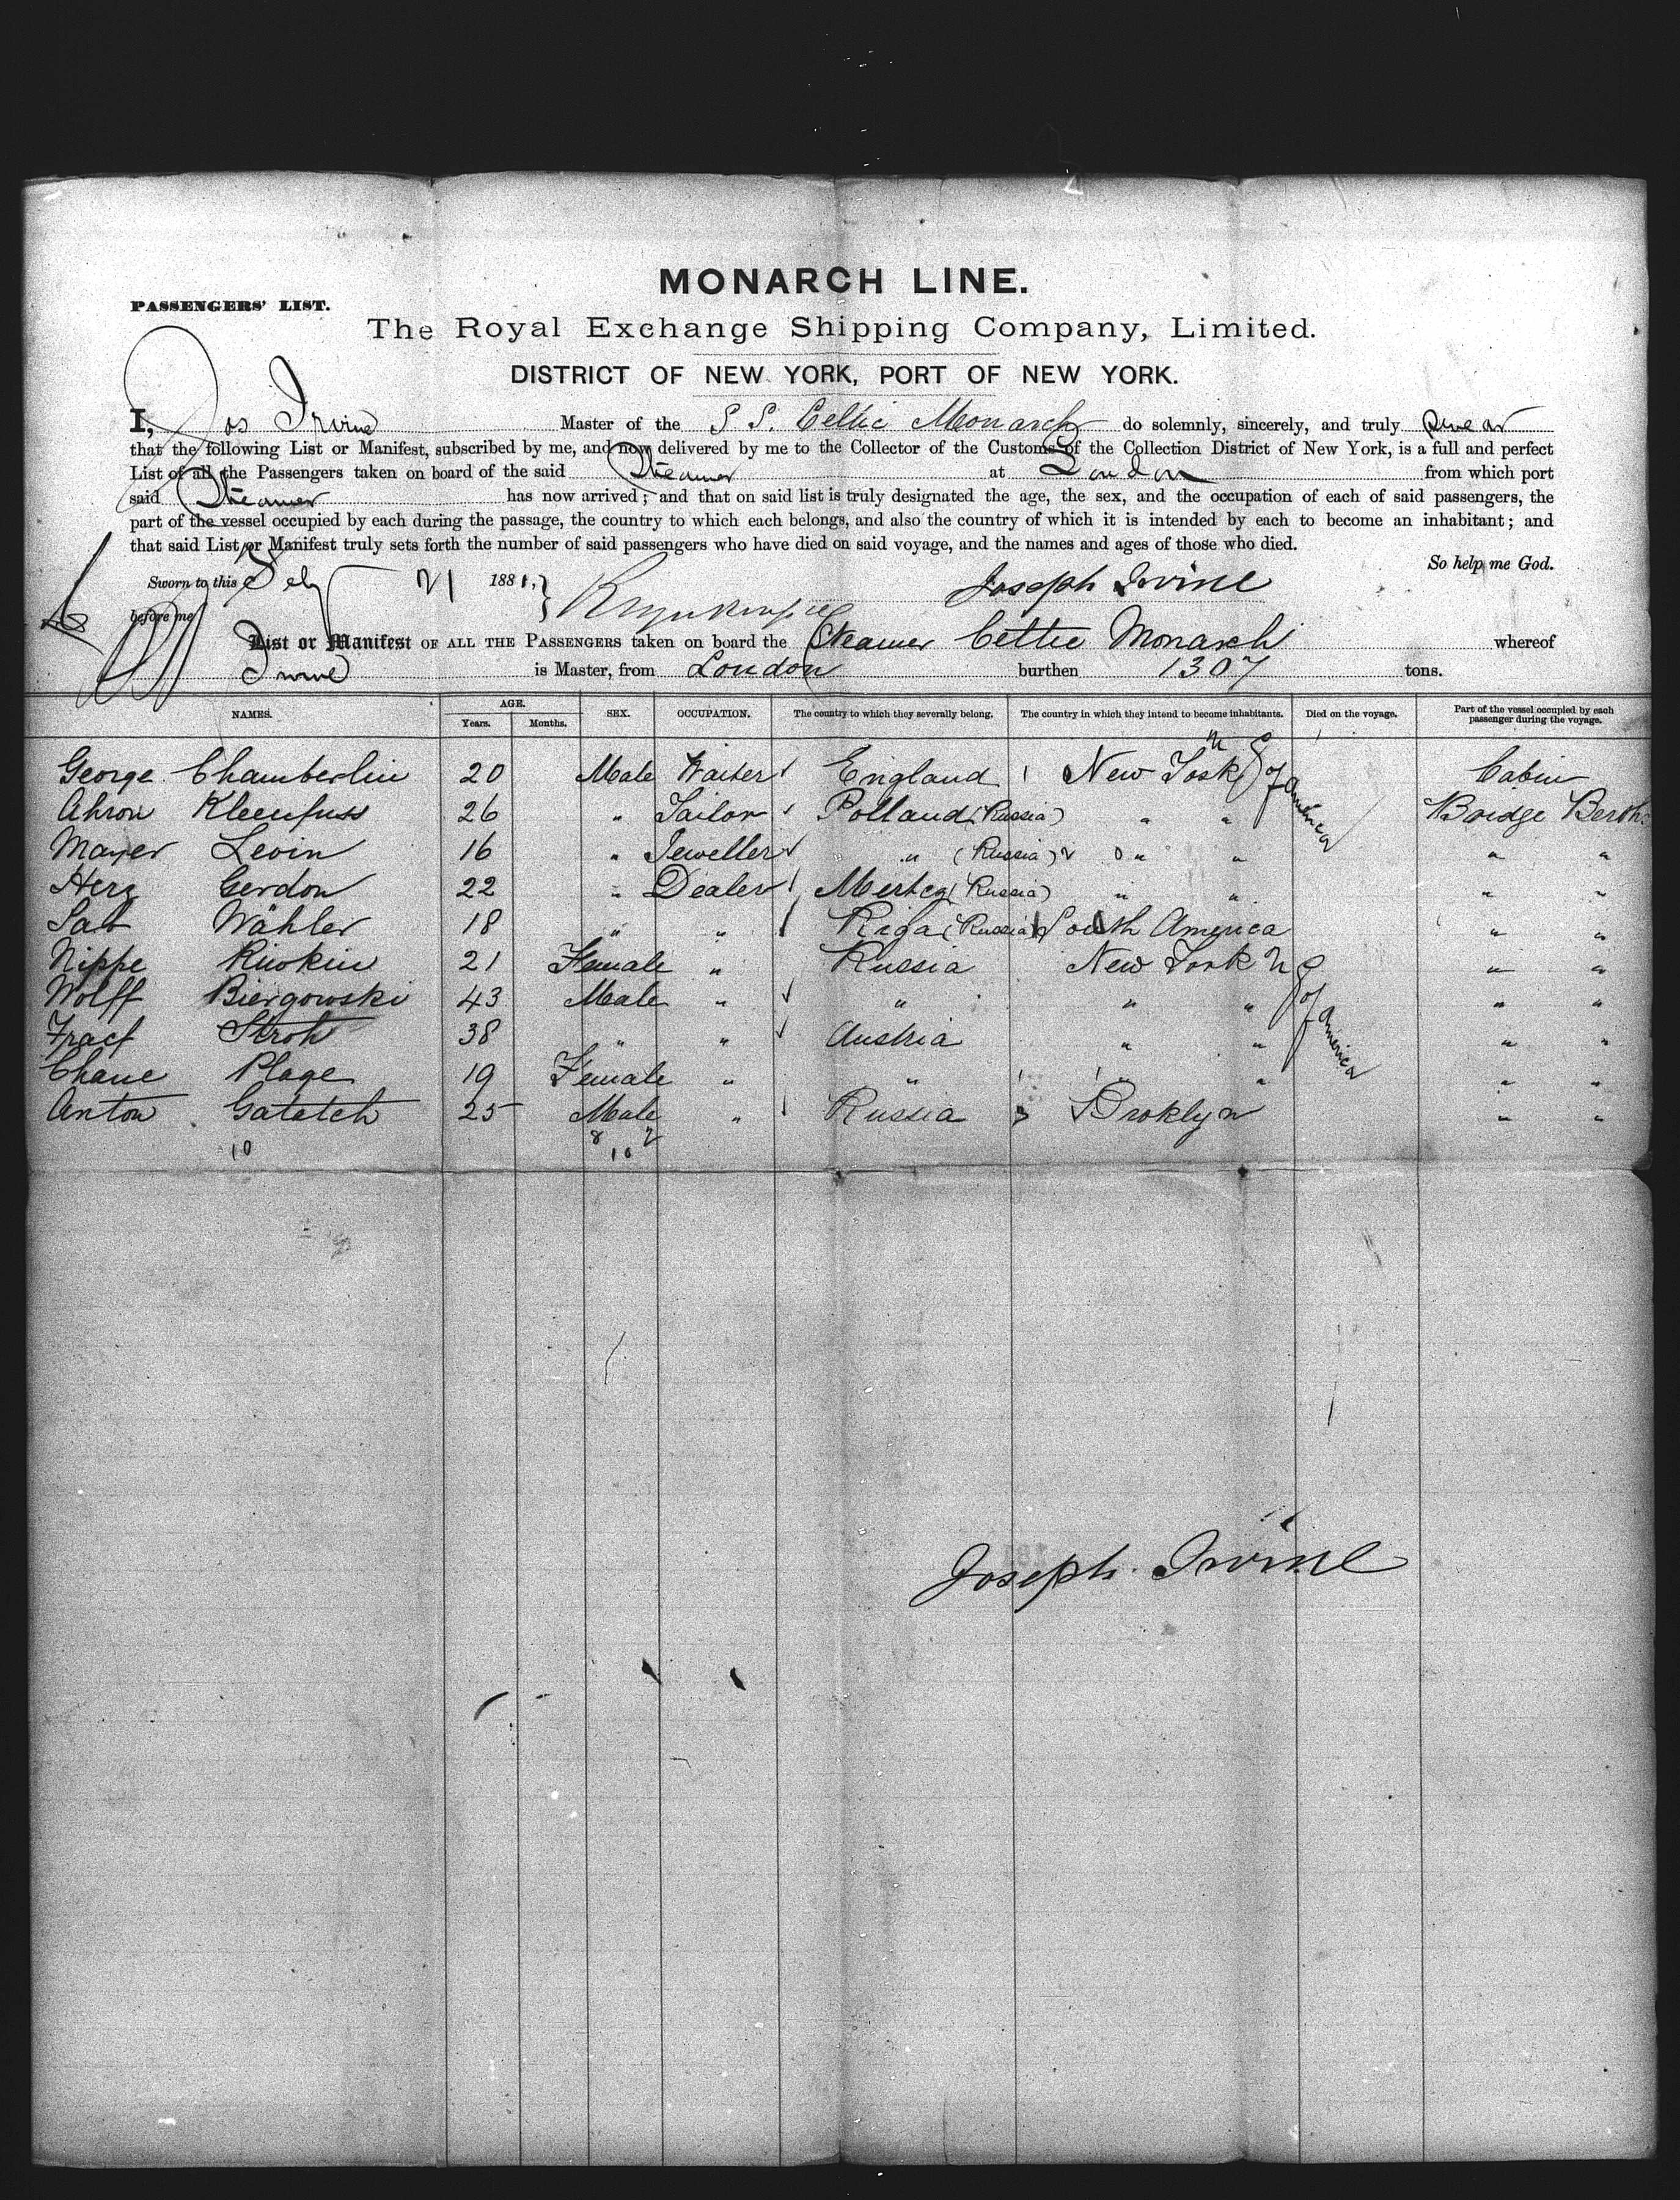 MONARCH LINE.
PASSENGERS' LIST.
The Royal Exchange Shipping Company, Limited.
DISTRICT OF NEW YORK, PORT OF NEW YORK.
I, Jos Irvine Master of the S S. Celtic Monarch do solemnly, sincerely, and truly swear
that the following List or Manifest, subscribed by me, and now delivered by me to the Collector of the Customs of the Collection District of New York, is a full and perfect
List of all the Passengers taken on board of the said Steamer at London from which port
said Steamer has now arrived; and that on said list is truly designated the age, the sex, and the occupation of each of said passengers, the
part of the vessel occupied by each during the passage, the country to which each belongs, and also the country of which it is intended by each to become an inhabitant; and
that said List or Manifest truly sets forth the number of said passengers who have died on said voyage, and the names and ages of those who died.
So help me God.
Sworn to this Feby 21 1881, Joseph Irvine
before me
List or Manifest OF ALL THE PASSENGERS taken on board the Steamer Celtic Monarch whereof
Irvine is Master, from London burthen 1307 tons.
NAMES. AGE. Years. Months. SEX. OCCUPATION. The country to which they severally belong. The country in which they intend to become inhabitants. Died on the voyage. Part of the vessel occupied by each passenger during the voyage.
George Chamberlin 20 Male Waiter England New York U S of America Cabin
Ahron Kleenfuss 26 " Tailor Polland (Russia) " " Bridge Berth
Mayer Levin 16 " Jeweller " (Russia) " " " "
Herz Gerdon 22 " Dealer (Russia) " " " "
Wähler 18 " " Riga (Russia) South America " "
Nippe 21 Female " Russia New York U S of America " "
Wolff Biergowski 43 Male " " " " " "
Stroh 38 " " Austria " " " "
Chane Plage 19 Female " " " " " "
Anton Gatetch 25 Male " Russia Broklyn " "
10 8 2
10
Joseph Irvine